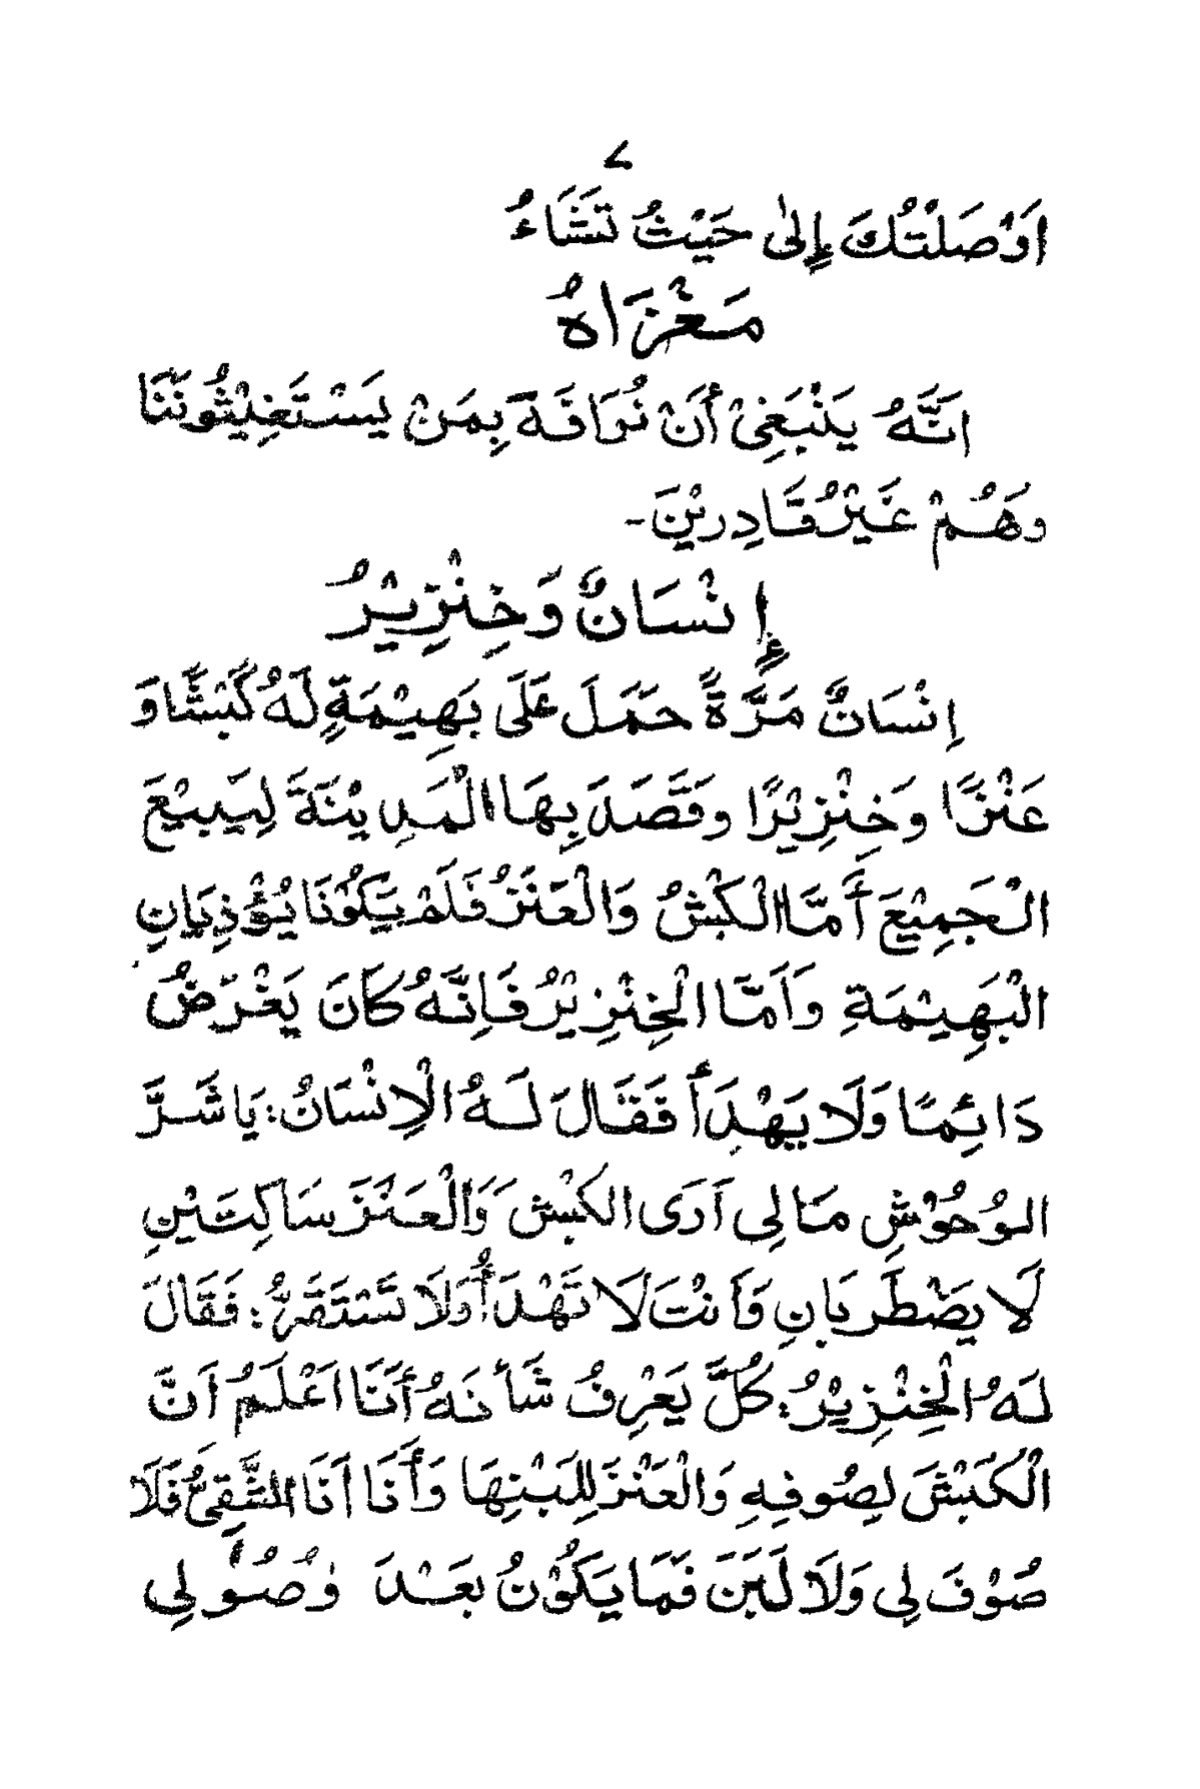 ٧
اَوْصَلْتُكَ إِلٰى حَيْثُ تَشَاءُ
مَغْزَاهُ
اَنَّهُ يَنْبَغِىْ أَنْ نُرَافَهَ بِمَنْ يَسْتَغِيْثُونَنَا
وهَُمْ غَيْرُ قَادِرِيْنَ-
إِنْسَانٌ وَخِنْزِيْرُ
اِنْسَانٌ مَرَّةً حَمَلَ عَلَى بَهِيْمَةٍ لَهُ كَبْشًا وَ
عَنْزًا وَخِنْزِيْرًا وقَصَدَ بِهَا الْمَدِيْنَةَ لِيَبِيْعَ
الْجَمِيْعَ أَمَّا الْكَبْشُ وَالْعَنَزُ فَلَمْ يَكُوْنَا يُؤْذِيَانِ
الْبَهِيْمَةِ وَاَمَّا الْخِنْزِيْرُ فَاِنَّهُ كَانَ يَغْرّضُ
دَائِمًا وَلَا يَهْدَأ فَقَالَ لَهُ الْاِنْسَانُ: يَا شَرَّ
الوُحُوْشِ مَالِى اَرَى الكَبْشَ وَالْعَنَزَ سَاكِتَيْنِ
لَا يضَْطَرِبَانِ وَاَنْتَ لَا تَهْدَأُ وَلَا تَسْتَقَرُّ: فَقَالَ
لَهُ الْخِنْزِيْرُ: كُلَّ يَعْرِفُ شَأنَهُ أَنَا اَعْلَمُ اَنَّ
الْكَبْشَ لِصُوفِهِ وَالْعَنْزَ لِلَبَنِهَا وَأَنَا اَنَا الشَّقِىُّ فَلَا
صُوْفَ لِى وَلَا لَبَنَ فَمَا يَكُوْنُ بَعْدَ وُصُوْلِى